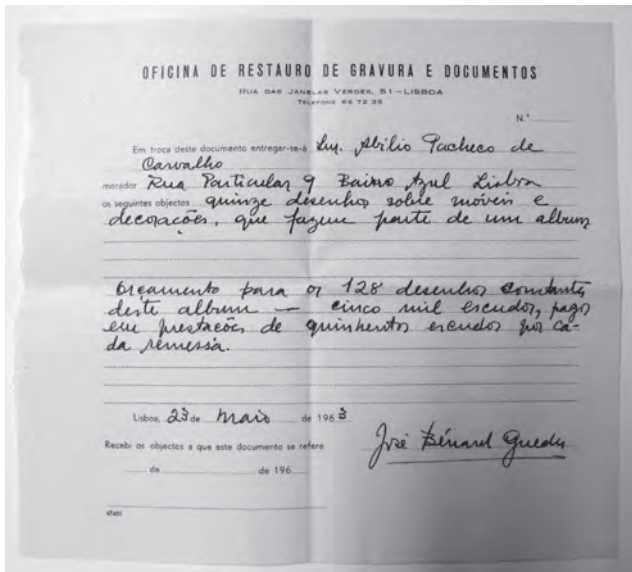 OFICINA DE RESTAURO DE GRAVURA E DOCUMENTOS
RUA DAS JANELAS VERDES, 51 – LISBOA
TELEFONE 66 72 35
N.º
Em troca deste documento entregar-se-á Snr. Abilio Pacheco de
Carvalho
morador Rua Particular 9 Bairro Azul Lisboa
os seguintes objectos quinze desenhos sobre móveis e
decorações, que fazem parte de um album
Orçamento para os 128 desenhos constantes
deste album — cinco mil escudos, pagos
em prestações de quinhentos escudos por ca-
da remessa.
Lisboa, 23 de Maio de 1963
José Bénard Guedes
Recebi os objectos a que este documento se refere
de de 196